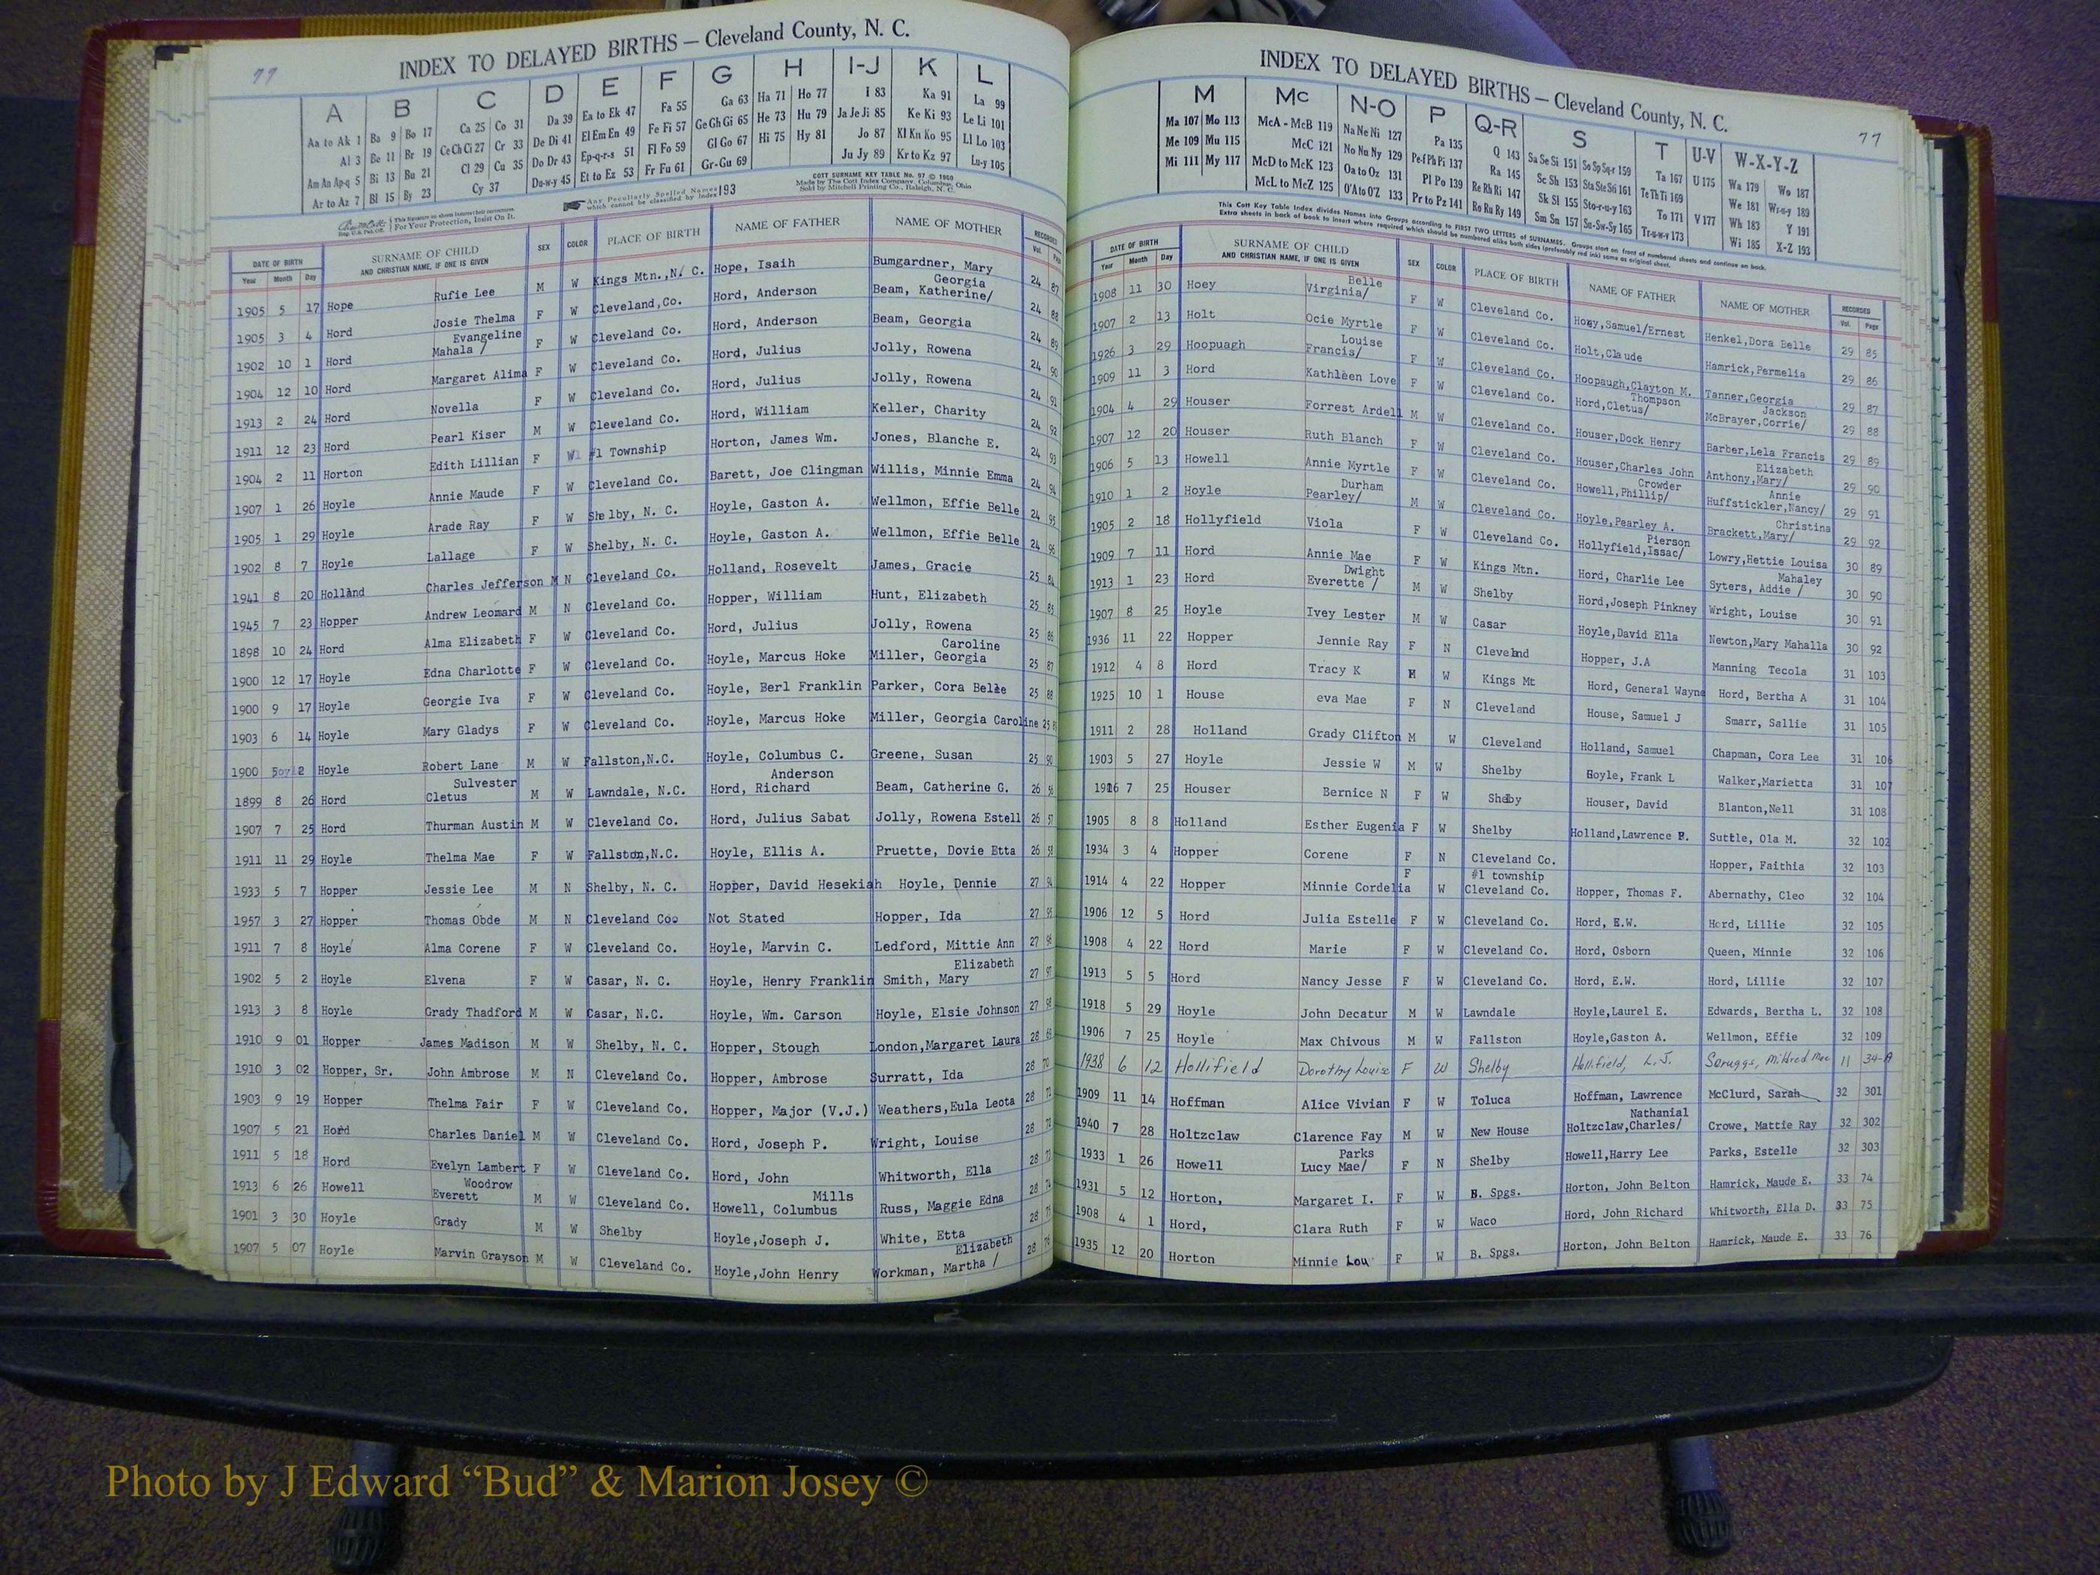 77
INDEX TO DELAYED BIRTHS — Cleveland County, N. C.
A B C D E F G H I-J K L
Aa to Ak 1 Ba 9 Bo 17 Ca 25 Co 31 Da 39 Ea to Ek 47 Fa 55 Ga 63 Ha 71 Ho 77 I 83 Ka 91 La 99
Al 3 Be 11 Br 19 Ce Ch Ci 27 Cr 33 De Di 41 El Em En 49 Fe Fi 57 Ge Gh Gi 65 He 73 Hu 79 Ja Je Ji 85 Ke Ki 93 Le Li 101
Am An Ap-q 5 Bi 13 Bu 21 Cl 29 Cu 35 Do Dr 43 Ep-q-r-s 51 Fl Fo 59 Gl Go 67 Hi 75 Hy 81 Jo 87 Kl Kn Ko 95 Ll Lo 103
Ar to Az 7 Bl 15 By 23 Cy 37 Du-w-y 45 Et to Ez 53 Fr Fu 61 Gr-Gu 69 Ju Jy 89 Kr to Kz 97 Lu-y 105
This Signature on sheets insures their correctness.
For Your Protection, Insist On It.
Any Peculiarly Spelled Names which cannot be classified by Index 193
COTT SURNAME KEY TABLE No. 97 © 1960
Made by The Cott Index Company, Columbus, Ohio
Sold by Mitchell Printing Co., Raleigh, N. C.
DATE OF BIRTH SURNAME OF CHILD SEX COLOR PLACE OF BIRTH NAME OF FATHER NAME OF MOTHER RECORDED
Year Month Day AND CHRISTIAN NAME, IF ONE IS GIVEN Vol. Page
1905 5 17 Hope Rufie Lee M W Kings Mtn.,N. C. Hope, Isaih Bumgardner, Mary 24 87
1905 3 4 Hord Josie Thelma F W Cleveland,Co. Hord, Anderson Beam, Katherine/ Georgia 24 88
1902 10 1 Hord Mahala / Evangeline F W Cleveland Co. Hord, Anderson Beam, Georgia 24 89
1904 12 10 Hord Margaret Alima F W Cleveland Co. Hord, Julius Jolly, Rowena 24 90
1913 2 24 Hord Novella F W Cleveland Co. Hord, Julius Jolly, Rowena 24 91
1911 12 23 Hord Pearl Kiser M W Cleveland Co. Hord, William Keller, Charity 24 92
1904 2 11 Horton Edith Lillian F W #1 Township Horton, James Wm. Jones, Blanche E. 24 93
1907 1 26 Hoyle Annie Maude F W Cleveland Co. Barett, Joe Clingman Willis, Minnie Emma 24 94
1905 1 29 Hoyle Arade Ray F W Shelby, N. C. Hoyle, Gaston A. Wellmon, Effie Belle 24 95
1902 8 7 Hoyle Lallage F W Shelby, N. C. Hoyle, Gaston A. Wellmon, Effie Belle 24 96
1941 8 20 Holland Charles Jefferson M N Cleveland Co. Holland, Rosevelt James, Gracie 25 84
1945 7 23 Hopper Andrew Leomard M N Cleveland Co. Hopper, William Hunt, Elizabeth 25 85
1898 10 24 Hord Alma Elizabeth F W Cleveland Co. Hord, Julius Jolly, Rowena 25 86
1900 12 17 Hoyle Edna Charlotte F W Cleveland Co. Hoyle, Marcus Hoke Miller, Georgia Caroline 25 87
1900 9 17 Hoyle Georgie Iva F W Cleveland Co. Hoyle, Berl Franklin Parker, Cora Belle 25 88
1903 6 14 Hoyle Mary Gladys F W Cleveland Co. Hoyle, Marcus Hoke Miller, Georgia Caroline 25 89
1900 2 Hoyle Robert Lane M W Fallston,N.C. Hoyle, Columbus C. Greene, Susan 25 90
1899 8 26 Hord Cletus Sulvester M W Lawndale, N.C. Hord, Richard Anderson Beam, Catherine G. 26 56
1907 7 25 Hord Thurman Austin M W Cleveland Co. Hord, Julius Sabat Jolly, Rowena Estell 26 57
1911 11 29 Hoyle Thelma Mae F W Fallston,N.C. Hoyle, Ellis A. Pruette, Dovie Etta 26 58
1933 5 7 Hopper Jessie Lee M N Shelby, N. C. Hopper, David Hesekiah Hoyle, Dennie 27 94
1957 3 27 Hopper Thomas Obde M N Cleveland Coo Not Stated Hopper, Ida 27 95
1911 7 8 Hoyle Alma Corene F W Cleveland Co. Hoyle, Marvin C. Ledford, Mittie Ann 27 96
1902 5 2 Hoyle Elvena F W Casar, N. C. Hoyle, Henry Franklin Smith, Mary Elizabeth 27 97
1913 3 8 Hoyle Grady Thadford M W Casar, N.C. Hoyle, Wm. Carson Hoyle, Elsie Johnson 27 98
1910 9 01 Hopper James Madison M W Shelby, N. C. Hopper, Stough London,Margaret Laura 28 69
1910 3 02 Hopper, Sr. John Ambrose M N Cleveland Co. Hopper, Ambrose Surratt, Ida 28 70
1903 9 19 Hopper Thelma Fair F W Cleveland Co. Hopper, Major (V.J.) Weathers,Eula Leota 28
1907 5 21 Hord Charles Daniel M W Cleveland Co. Hord, Joseph P. Wright, Louise 28
1911 5 18 Hord Evelyn Lambert F W Cleveland Co. Hord, John Whitworth, Ella 28
1913 6 26 Howell Everett Woodrow M W Cleveland Co. Howell, Columbus Mills Russ, Maggie Edna 28 74
1901 3 30 Hoyle Grady M W Shelby Hoyle,Joseph J. White, Etta 28 75
1907 5 07 Hoyle Marvin Grayson M W Cleveland Co. Hoyle,John Henry Workman, Martha / Elizabeth 28 76
INDEX TO DELAYED BIRTHS — Cleveland County, N. C.
77
M Mc N-O P Q-R S T U-V W-X-Y-Z
Ma 107 Mo 113 McA - McB 119 Na Ne Ni 127 Pa 135 Q 143 Sa Se Si 151 So Sp Sq-r 159 Ta 167 U 175 Wa 179 Wo 187
Me 109 Mu 115 McC 121 No Nu Ny 129 Pe-f Ph Pi 137 Ra 145 Sc Sh 153 Sta Ste Sti 161 Te Th Ti 169 We 181 Wr-u-y 189
Mi 111 My 117 McD to McK 123 Oa to Oz 131 Pl Po 139 Re Rh Ri 147 Sk Sl 155 Sto-r-u-y 163 To 171 V 177 Wh 183 Y 191
McL to McZ 125 O'A to O'Z 133 Pr to Pz 141 Ro Ru Ry 149 Sm Sn 157 Su-Sw-Sy 165 Tr-u-w-y 173 Wi 185 X-Z 193
This Cott Key Table Index divides Names into Groups according to FIRST TWO LETTERS of SURNAMES. Groups start on front of numbered sheets and continue on back.
Extra sheets in back of book to insert where required which should be numbered alike both sides (preferably red ink) same as original sheet.
DATE OF BIRTH SURNAME OF CHILD SEX COLOR PLACE OF BIRTH NAME OF FATHER NAME OF MOTHER RECORDED
Year Month Day AND CHRISTIAN NAME, IF ONE IS GIVEN Vol. Page
1908 11 30 Hoey Virginia/ Belle F W Cleveland Co. Hoey,Samuel/Ernest Henkel,Dora Belle 29 85
1907 2 13 Holt Ocie Myrtle F W Cleveland Co. Holt,Claude Hamrick, Permelia 29 86
1926 3 29 Hoopuagh Francis/ Louise F W Cleveland Co. Hoopaugh,Clayton M. Tanner,Georgia 29 87
1909 11 3 Hord Kathleen Love F W Cleveland Co. Hord,Cletus/ Thompson McBrayer,Corrie/ Jackson 29 88
1904 4 29 Houser Forrest Ardell M W Cleveland Co. Houser,Dock Henry Barber,Lela Francis 29 89
1907 12 20 Houser Ruth Blanch F W Cleveland Co. Houser,Charles John Anthony,Mary/ Elizabeth 29 90
1906 5 13 Howell Annie Myrtle F W Cleveland Co. Howell,Phillip/ Crowder Huffstickler,Nancy/ Annie 29 91
1910 1 2 Hoyle Pearley/ Durham M W Cleveland Co. Hoyle,Pearley A. Brackett,Mary/ Christina 29 92
1905 2 18 Hollyfield Viola F W Cleveland Co. Hollyfield,Issac/ Pierson Lowry,Hettie Louisa 30 89
1909 7 11 Hord Annie Mae F W Kings Mtn. Hord, Charlie Lee Syters, Addie / Mahaley 30 90
1913 1 23 Hord Everette / Dwight M W Shelby Hord,Joseph Pinkney Wright, Louise 30 91
1907 8 25 Hoyle Ivey Lester M W Casar Hoyle,David Ella Newton,Mary Mahalla 30 92
1936 11 22 Hopper Jennie Ray F N Cleveland Hopper, J.A Manning Tecola 31 103
1912 4 8 Hord Tracy K W Kings Mt Hord, General Wayne Hord, Bertha A 31 104
1925 10 1 House eva Mae F N Cleveland House, Samuel J Smarr, Sallie 31 105
1911 2 28 Holland Grady Clifton M W Cleveland Holland, Samuel Chapman, Cora Lee 31 106
1903 5 27 Hoyle Jessie W M W Shelby Hoyle, Frank L Walker,Marietta 31 107
1916 7 25 Houser Bernice N F W Shelby Houser, David Blanton,Nell 31 108
1905 8 8 Holland Esther Eugenia F W Shelby Holland,Lawrence P. Suttle, Ola M. 32 102
1934 3 4 Hopper Corene F N Cleveland Co. Hopper, Faithia 32 103
1914 4 22 Hopper Minnie Cordelia F W #1 township Cleveland Co. Hopper, Thomas F. Abernathy, Cleo 32 104
1906 12 5 Hord Julia Estelle F W Cleveland Co. Hord, E.W. Hord, Lillie 32 105
1908 4 22 Hord Marie F W Cleveland Co. Hord, Osborn Queen, Minnie 32 106
1913 5 5 Hord Nancy Jesse F W Cleveland Co. Hord, E.W. Hord, Lillie 32 107
1918 5 29 Hoyle John Decatur M W Lawndale Hoyle,Laurel E. Edwards, Bertha L. 32 108
1906 7 25 Hoyle Max Chivous M W Fallston Hoyle,Gaston A. Wellmon, Effie 32 109
1938 6 12 Hollifield Dorothy Louise F W Shelby Hollifield, L. J. Scruggs, Mildred Mae 11 34-A
1909 11 14 Hoffman Alice Vivian F W Toluca Hoffman, Lawrence McClurd, Sarah 32 301
1940 7 28 Holtzclaw Clarence Fay M W New House Holtzclaw,Charles/ Nathanial Crowe, Mattie Ray 32 302
1933 1 26 Howell Lucy Mae/ Parks F N Shelby Howell,Harry Lee Parks, Estelle 32 303
1931 5 12 Horton, Margaret I. F W B. Spgs. Horton, John Belton Hamrick, Maude E. 33 74
1908 4 1 Hord, Clara Ruth F W Waco Hord, John Richard Whitworth, Ella D. 33 75
1935 12 20 Horton Minnie Lou F W B. Spgs. Horton, John Belton Hamrick, Maude E. 33 76
Photo by J Edward “Bud” & Marion Josey ©